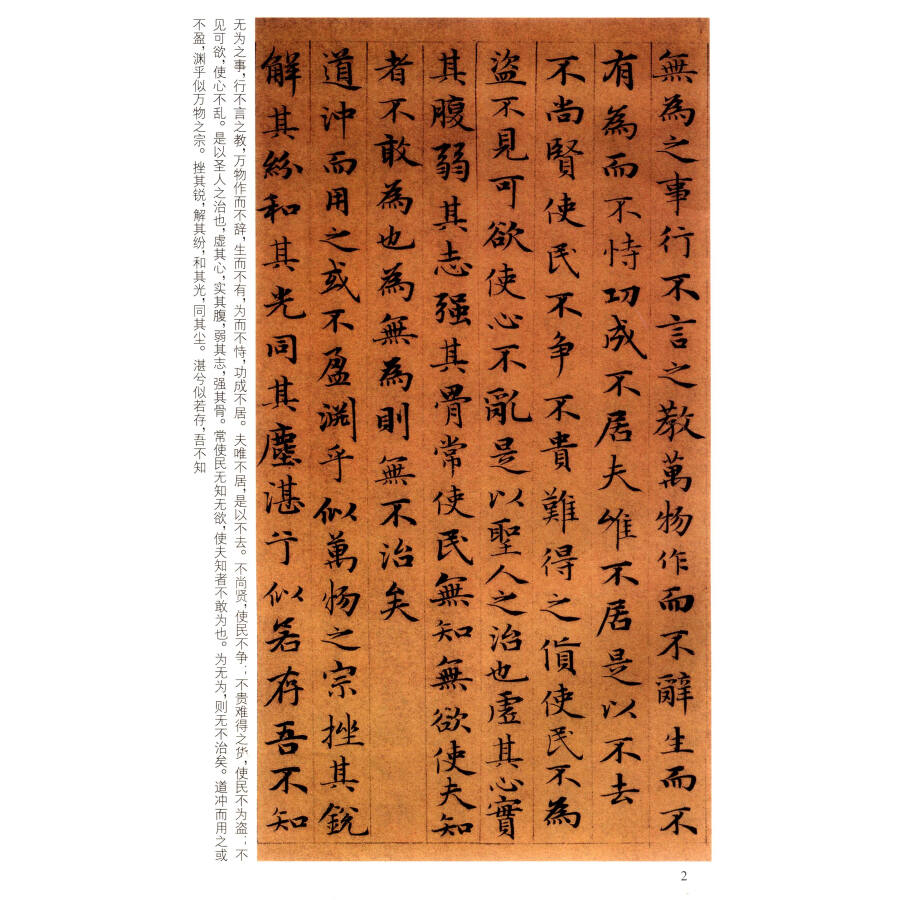 無為之事行不言之教萬物作而不辭生而不
有為而不恃功成不居夫唯不居是以不去
不尚賢使民不争不貴難得之貨使民不為
盜不見可欲使心不亂是以聖人之治也虛其心實
其腹弱其志强其骨常使民無知無欲使夫知
者不敢為也為無為則無不治矣
道沖而用之或不盈渊乎似萬物之宗挫其銳
解其紛和其光同其塵湛兮似若存吾不知
无为之事，行不言之教，万物作而不辞，生而不有，为而不恃，功成不居。夫唯不居，是以不去。不尚贤，使民不争；不贵难得之货，使民不为盗；不
见可欲，使心不乱。是以圣人之治也，虚其心，实其腹，弱其志，强其骨。常使民无知无欲，使夫知者不敢为也。为无为，则无不治矣。道冲而用之或
不盈，渊乎似万物之宗。挫其锐，解其纷，和其光，同其尘。湛兮似若存，吾不知
2